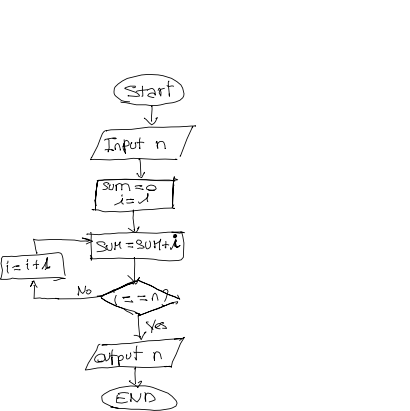 Start
Input n
sum=0
i=1
sum=sum+i
i=i+1
No
i==n?
Yes
output n
END